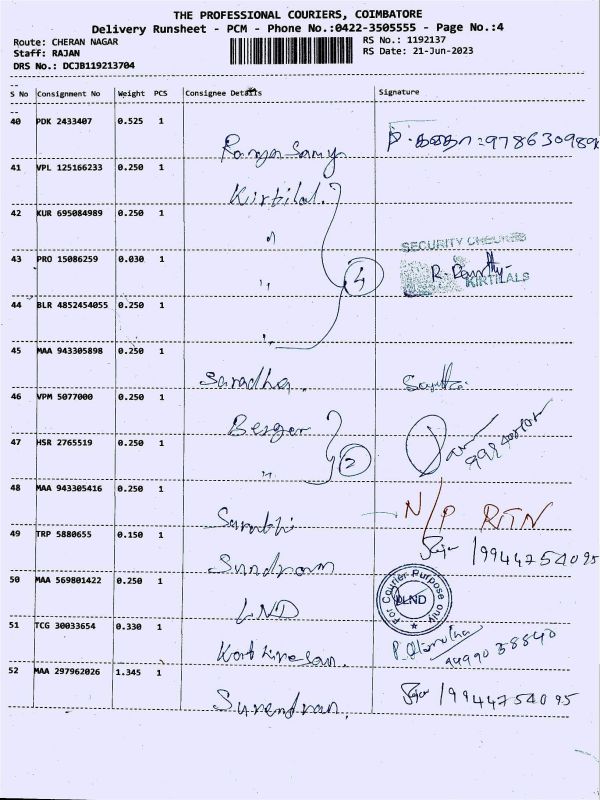 THE PROFESSIONAL COURIERS, COIMBATORE
Delivery Runsheet - PCM - Phone No.:0422-3505555 - Page No.:4
Route: CHERAN NAGAR
RS No.: 1192137
Staff: RAJAN
RS Date: 21-Jun-2023
DRS No.: DCJB119213704
S No Consignment No Weight PCS Consignee Details Signature
40 PDK 2433407 0.525 1
Rangasamy
41 VPL 125166233 0.250 1
Kirtilal.
42 KUR 695084989 0.250 1
"
SECURITY CHECKED
43 PRO 15086259 0.030 1
"
4
KIRTILALS
44 BLR 4852454055 0.250 1
"
45 MAA 943305898 0.250 1
Saradha.
46 VPM 5077000 0.250 1
Berger
47 HSR 2765519 0.250 1
"
2
48 MAA 943305416 0.250 1
N/P RTN
49 TRP 5880655 0.150 1
Sundram
19944754095
50 MAA 569801422 0.250 1
LND
For Courier Purpose only
LND
51 TCG 30033654 0.330 1
52 MAA 297962026 1.345 1
Surendran.
19944754095